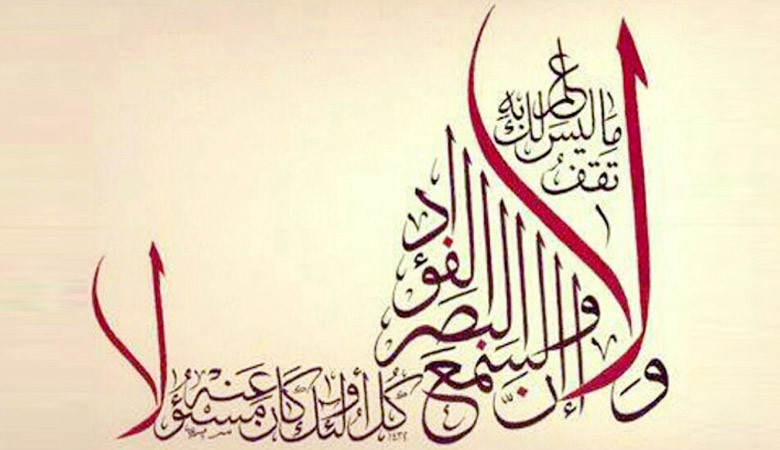 ولا تقف
ما ليس لك به علم
إنّ السمع والبصر والفؤاد
كل أولئك كان عنه مسؤولا
١٤٣٢